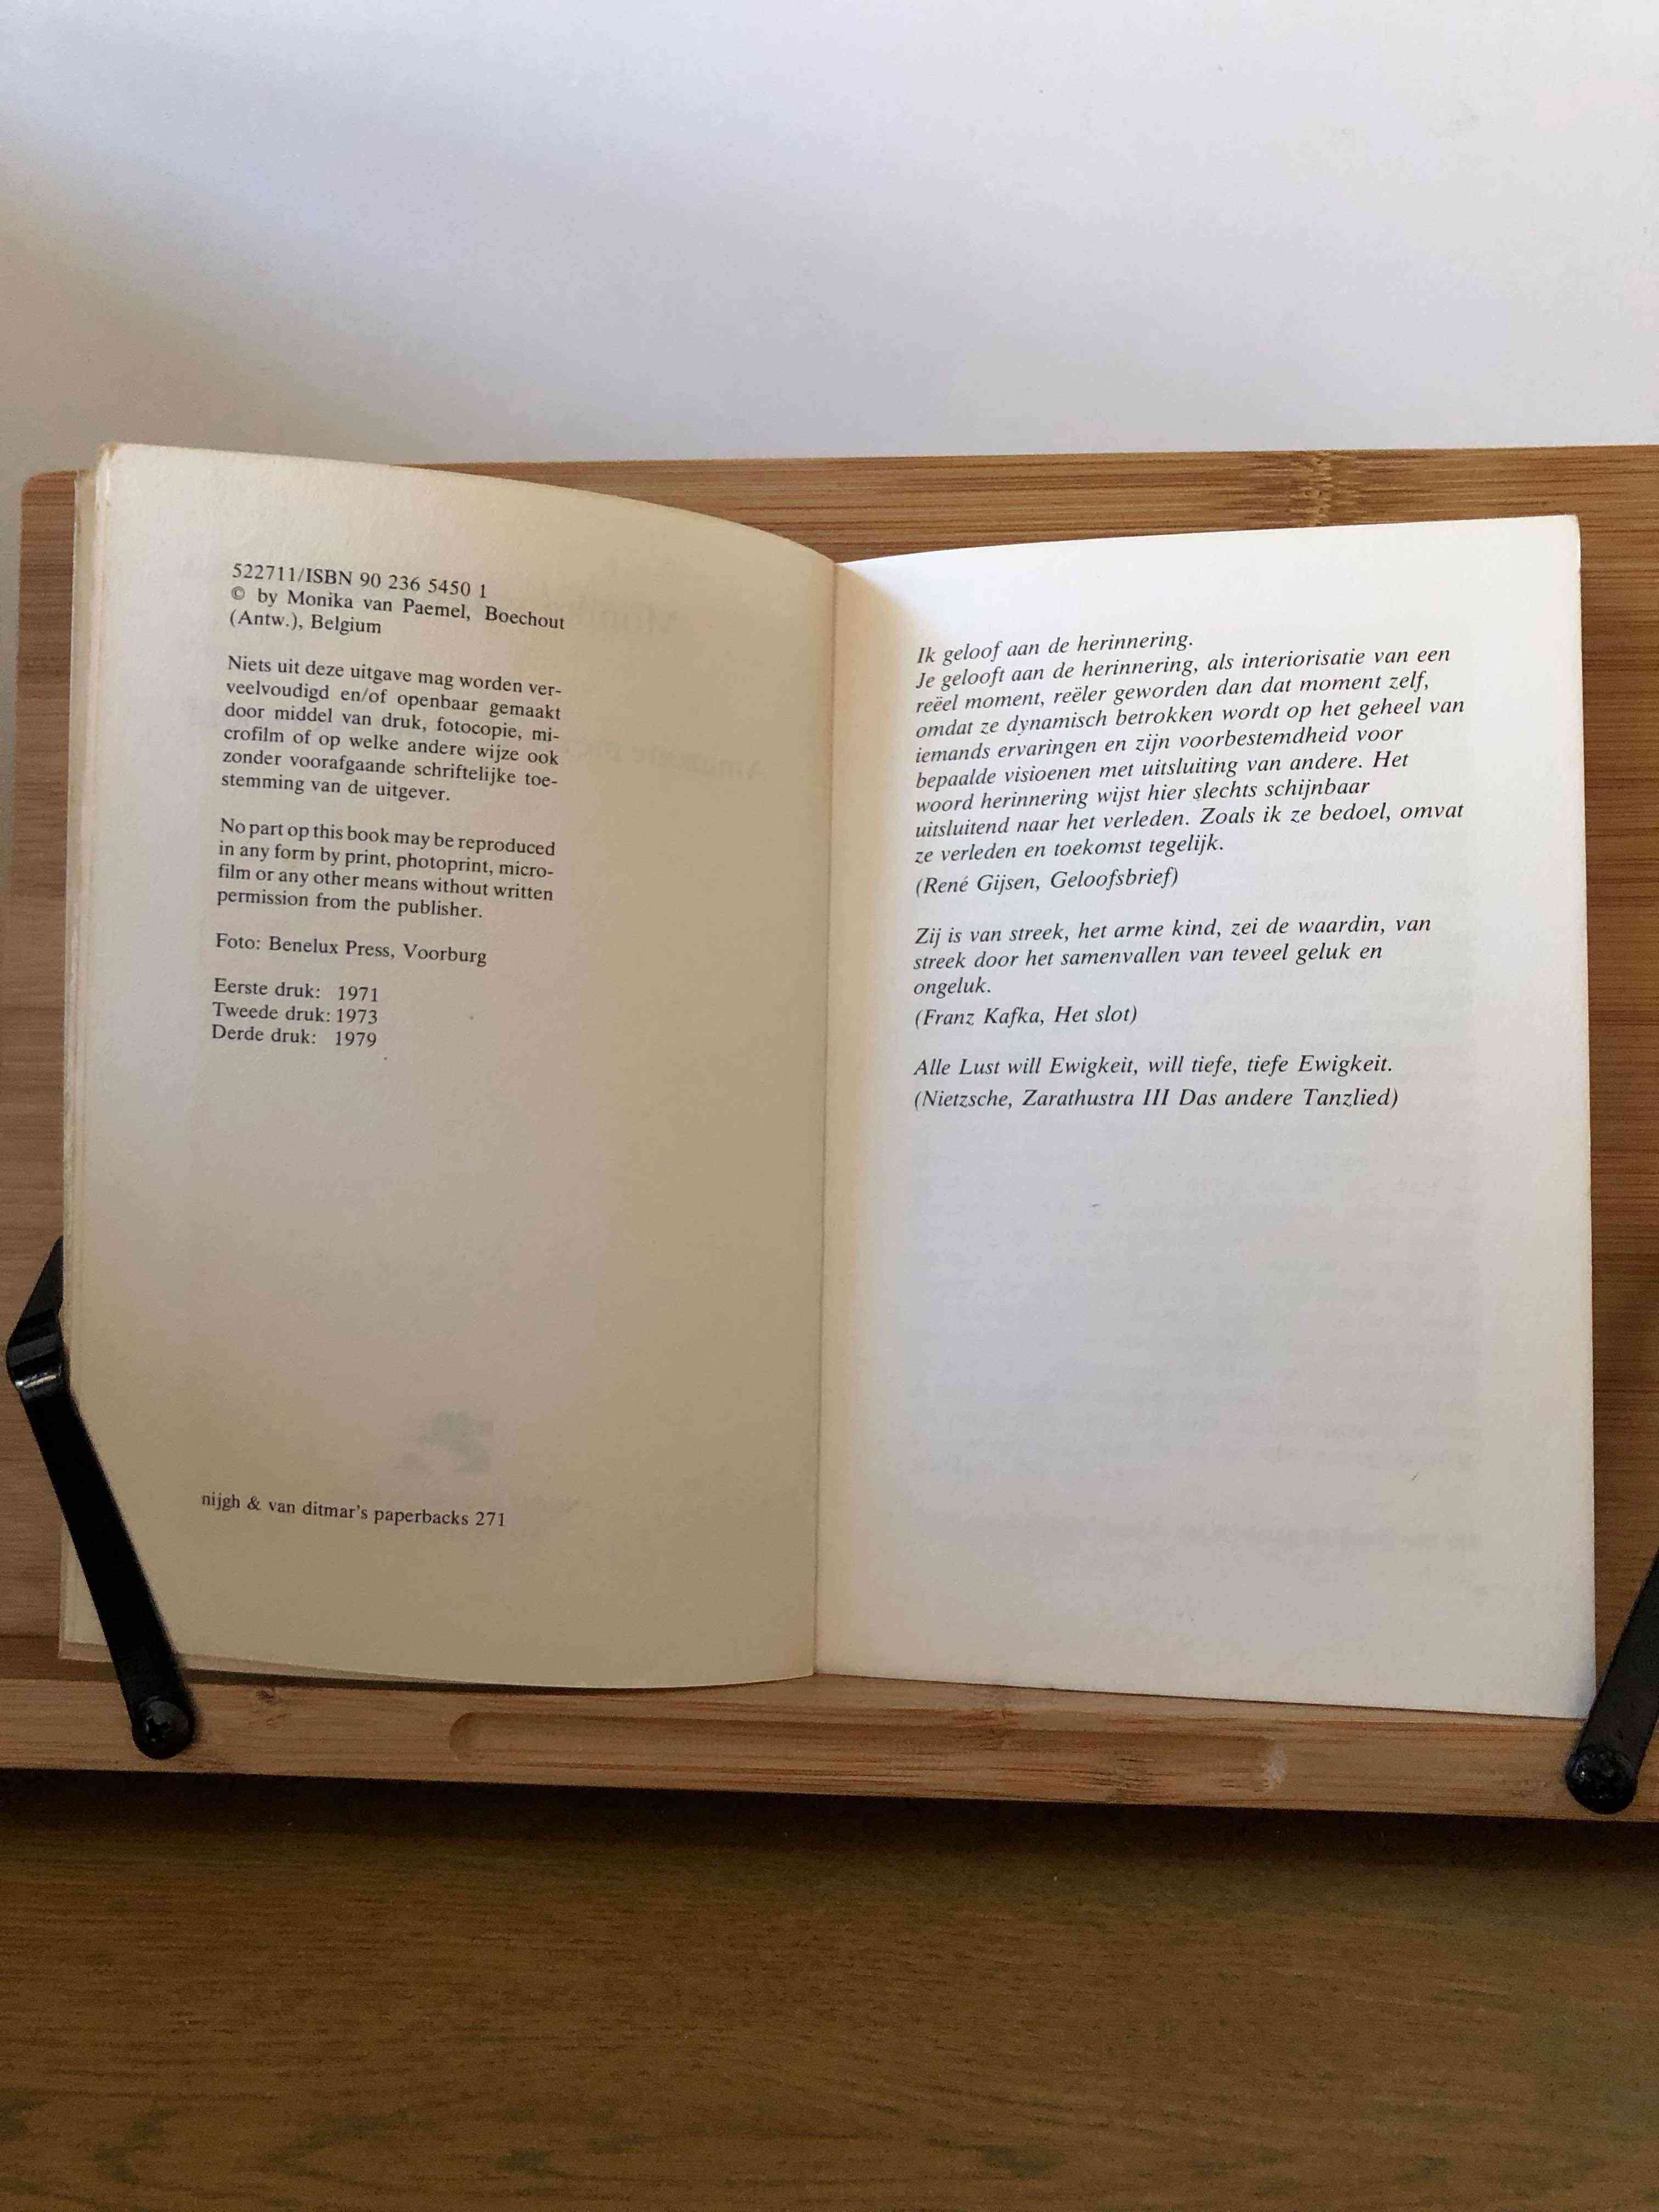 522711/ISBN 90 236 5450 1
© by Monika van Paemel, Boechout
(Antw.), Belgium
Niets uit deze uitgave mag worden ver-
veelvoudigd en/of openbaar gemaakt
door middel van druk, fotocopie, mi-
crofilm of op welke andere wijze ook
zonder voorafgaande schriftelijke toe-
stemming van de uitgever.
No part op this book may be reproduced
in any form by print, photoprint, micro-
film or any other means without written
permission from the publisher.
Foto: Benelux Press, Voorburg
Eerste druk: 1971
Tweede druk: 1973
Derde druk: 1979
nijgh & van ditmar's paperbacks 271
Ik geloof aan de herinnering.
Je gelooft aan de herinnering, als interiorisatie van een
reëel moment, reëler geworden dan dat moment zelf,
omdat ze dynamisch betrokken wordt op het geheel van
iemands ervaringen en zijn voorbestemdheid voor
bepaalde visioenen met uitsluiting van andere. Het
woord herinnering wijst hier slechts schijnbaar
uitsluitend naar het verleden. Zoals ik ze bedoel, omvat
ze verleden en toekomst tegelijk.
(René Gijsen, Geloofsbrief)
Zij is van streek, het arme kind, zei de waardin, van
streek door het samenvallen van teveel geluk en
ongeluk.
(Franz Kafka, Het slot)
Alle Lust will Ewigkeit, will tiefe, tiefe Ewigkeit.
(Nietzsche, Zarathustra III Das andere Tanzlied)